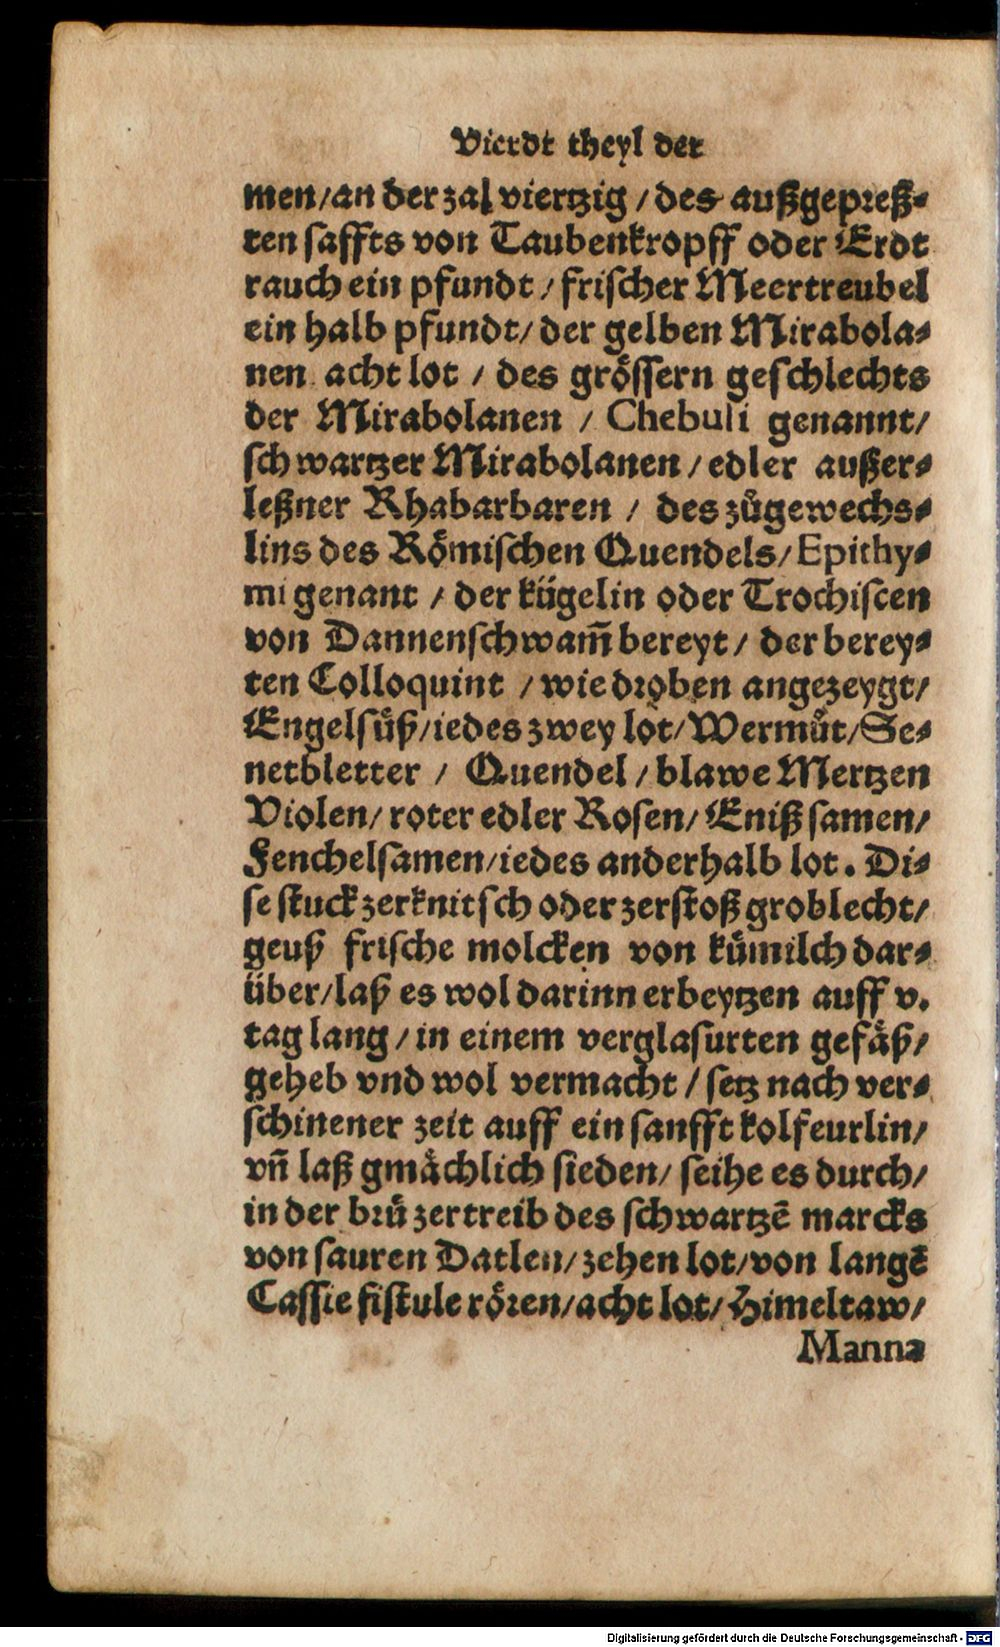 Vierdt theyl der
men/an der zal viertzig / des außgepreß⸗
ten saffts von Taubenkropff oder Erdt
rauch ein pfundt / frischer Meertreubel
ein halb pfundt/ der gelben Mirabola⸗
nen acht lot / des grössern geschlechts
der Mirabolanen / Chebuli genannt/
schwartzer Mirabolanen / edler außer⸗
leßner Rhabarbaren / des zůgewechs⸗
lins des Römischen Quendels/ Epithy⸗
mi genant / der kügelin oder Trochiscen
von Dannenschwam̃ bereyt / der berey⸗
ten Colloquint / wie droben angezeygt/
Engelsüß/iedes zwey lot/ Wermůt/Se⸗
netbletter / Quendel / blawe Mertzen
Violen/ roter edler Rosen/ Eniß samen/
Fenchelsamen/iedes anderhalb lot. Di⸗
se stuck zerknitsch oder zerstoß groblecht/
geuß frische molcken von kůmilch dar⸗
über/laß es wol darinn erbeytzen auff v.
tag lang / in einem verglasurten gefäß/
geheb vnd wol vermacht / setz nach ver⸗
schinener zeit auff ein sanfft kolfeurlin/
vñ laß gmächlich sieden/ seihe es durch/
in der brů zertreib des schwartzẽ marcks
von sauren Datlen/ zehen lot/von langẽ
Cassie fistule rören/acht lot/ Himeltaw/
Manna
Digitalisierung gefördert durch die Deutsche Forschungsgemeinschaft - DFG